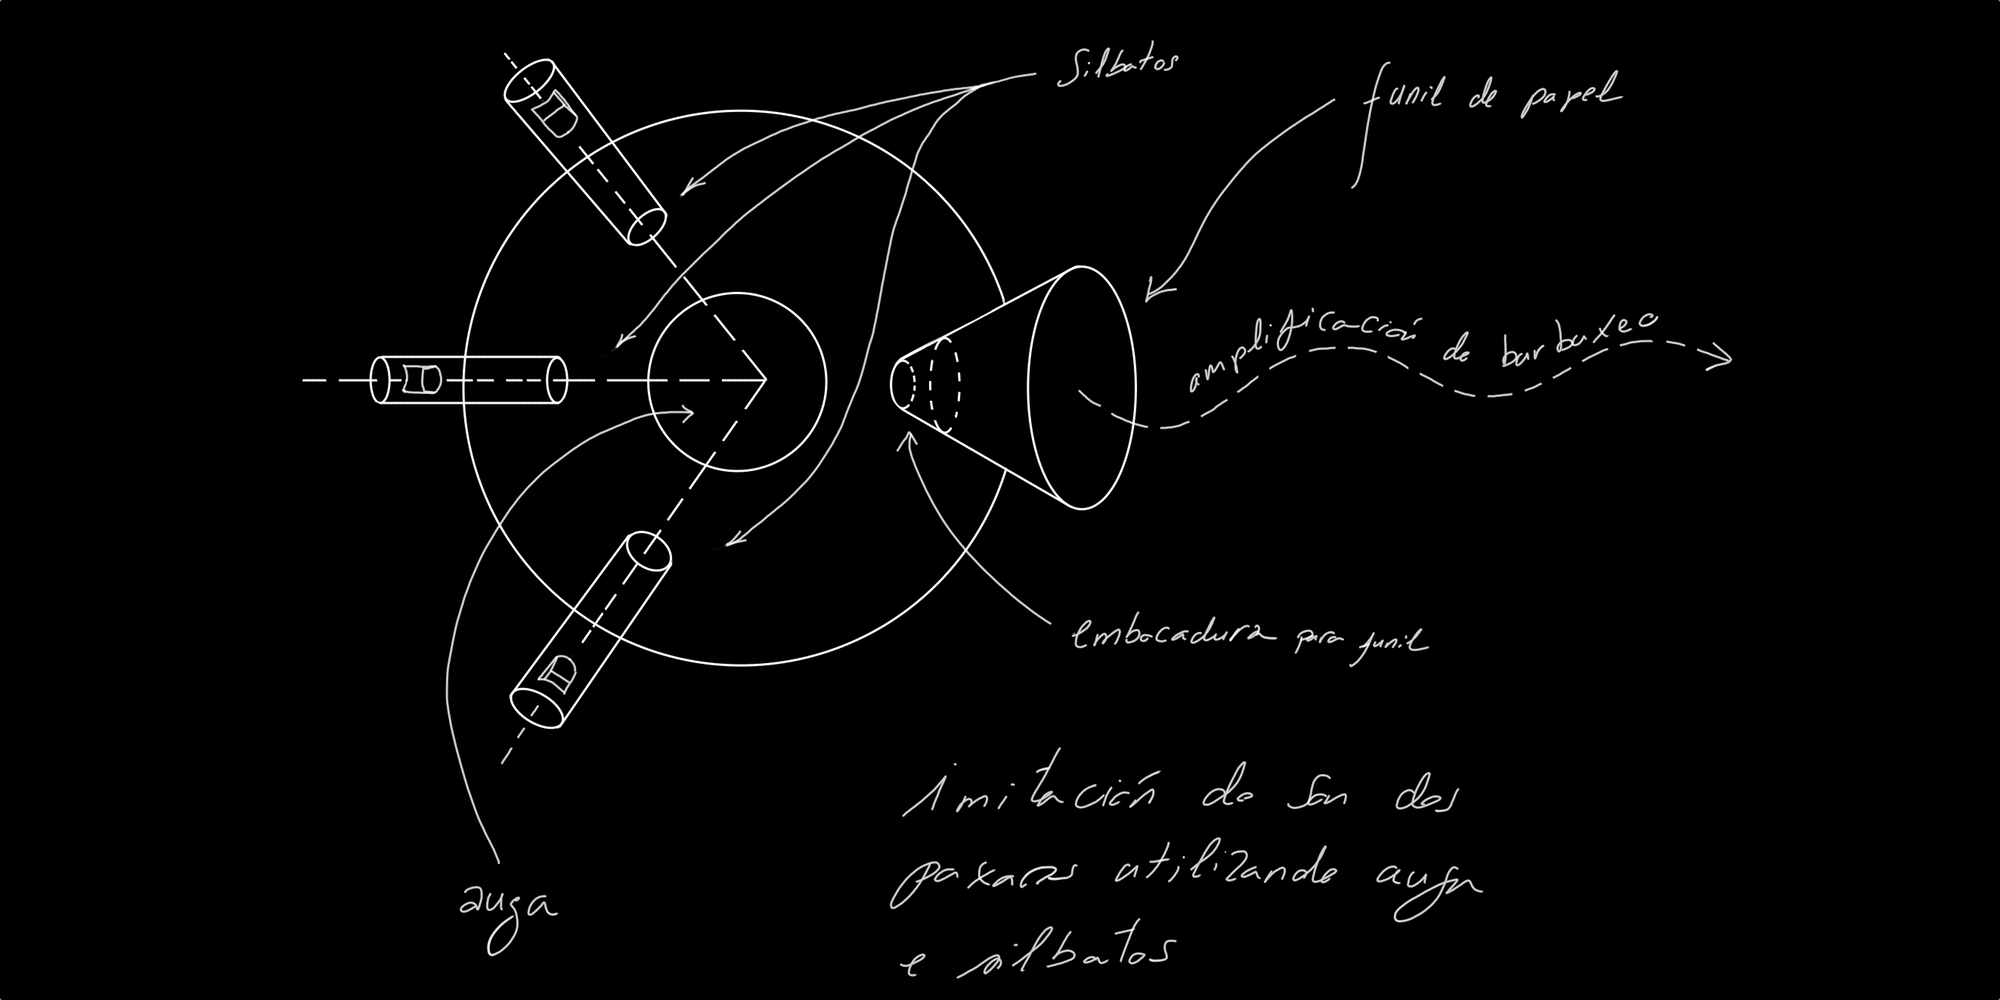 Silbatos
funil de papel
amplificación de barbuxeo
embocadura para funil
auga
imitación do son dos
paxaros utilizando auga
e silbatos